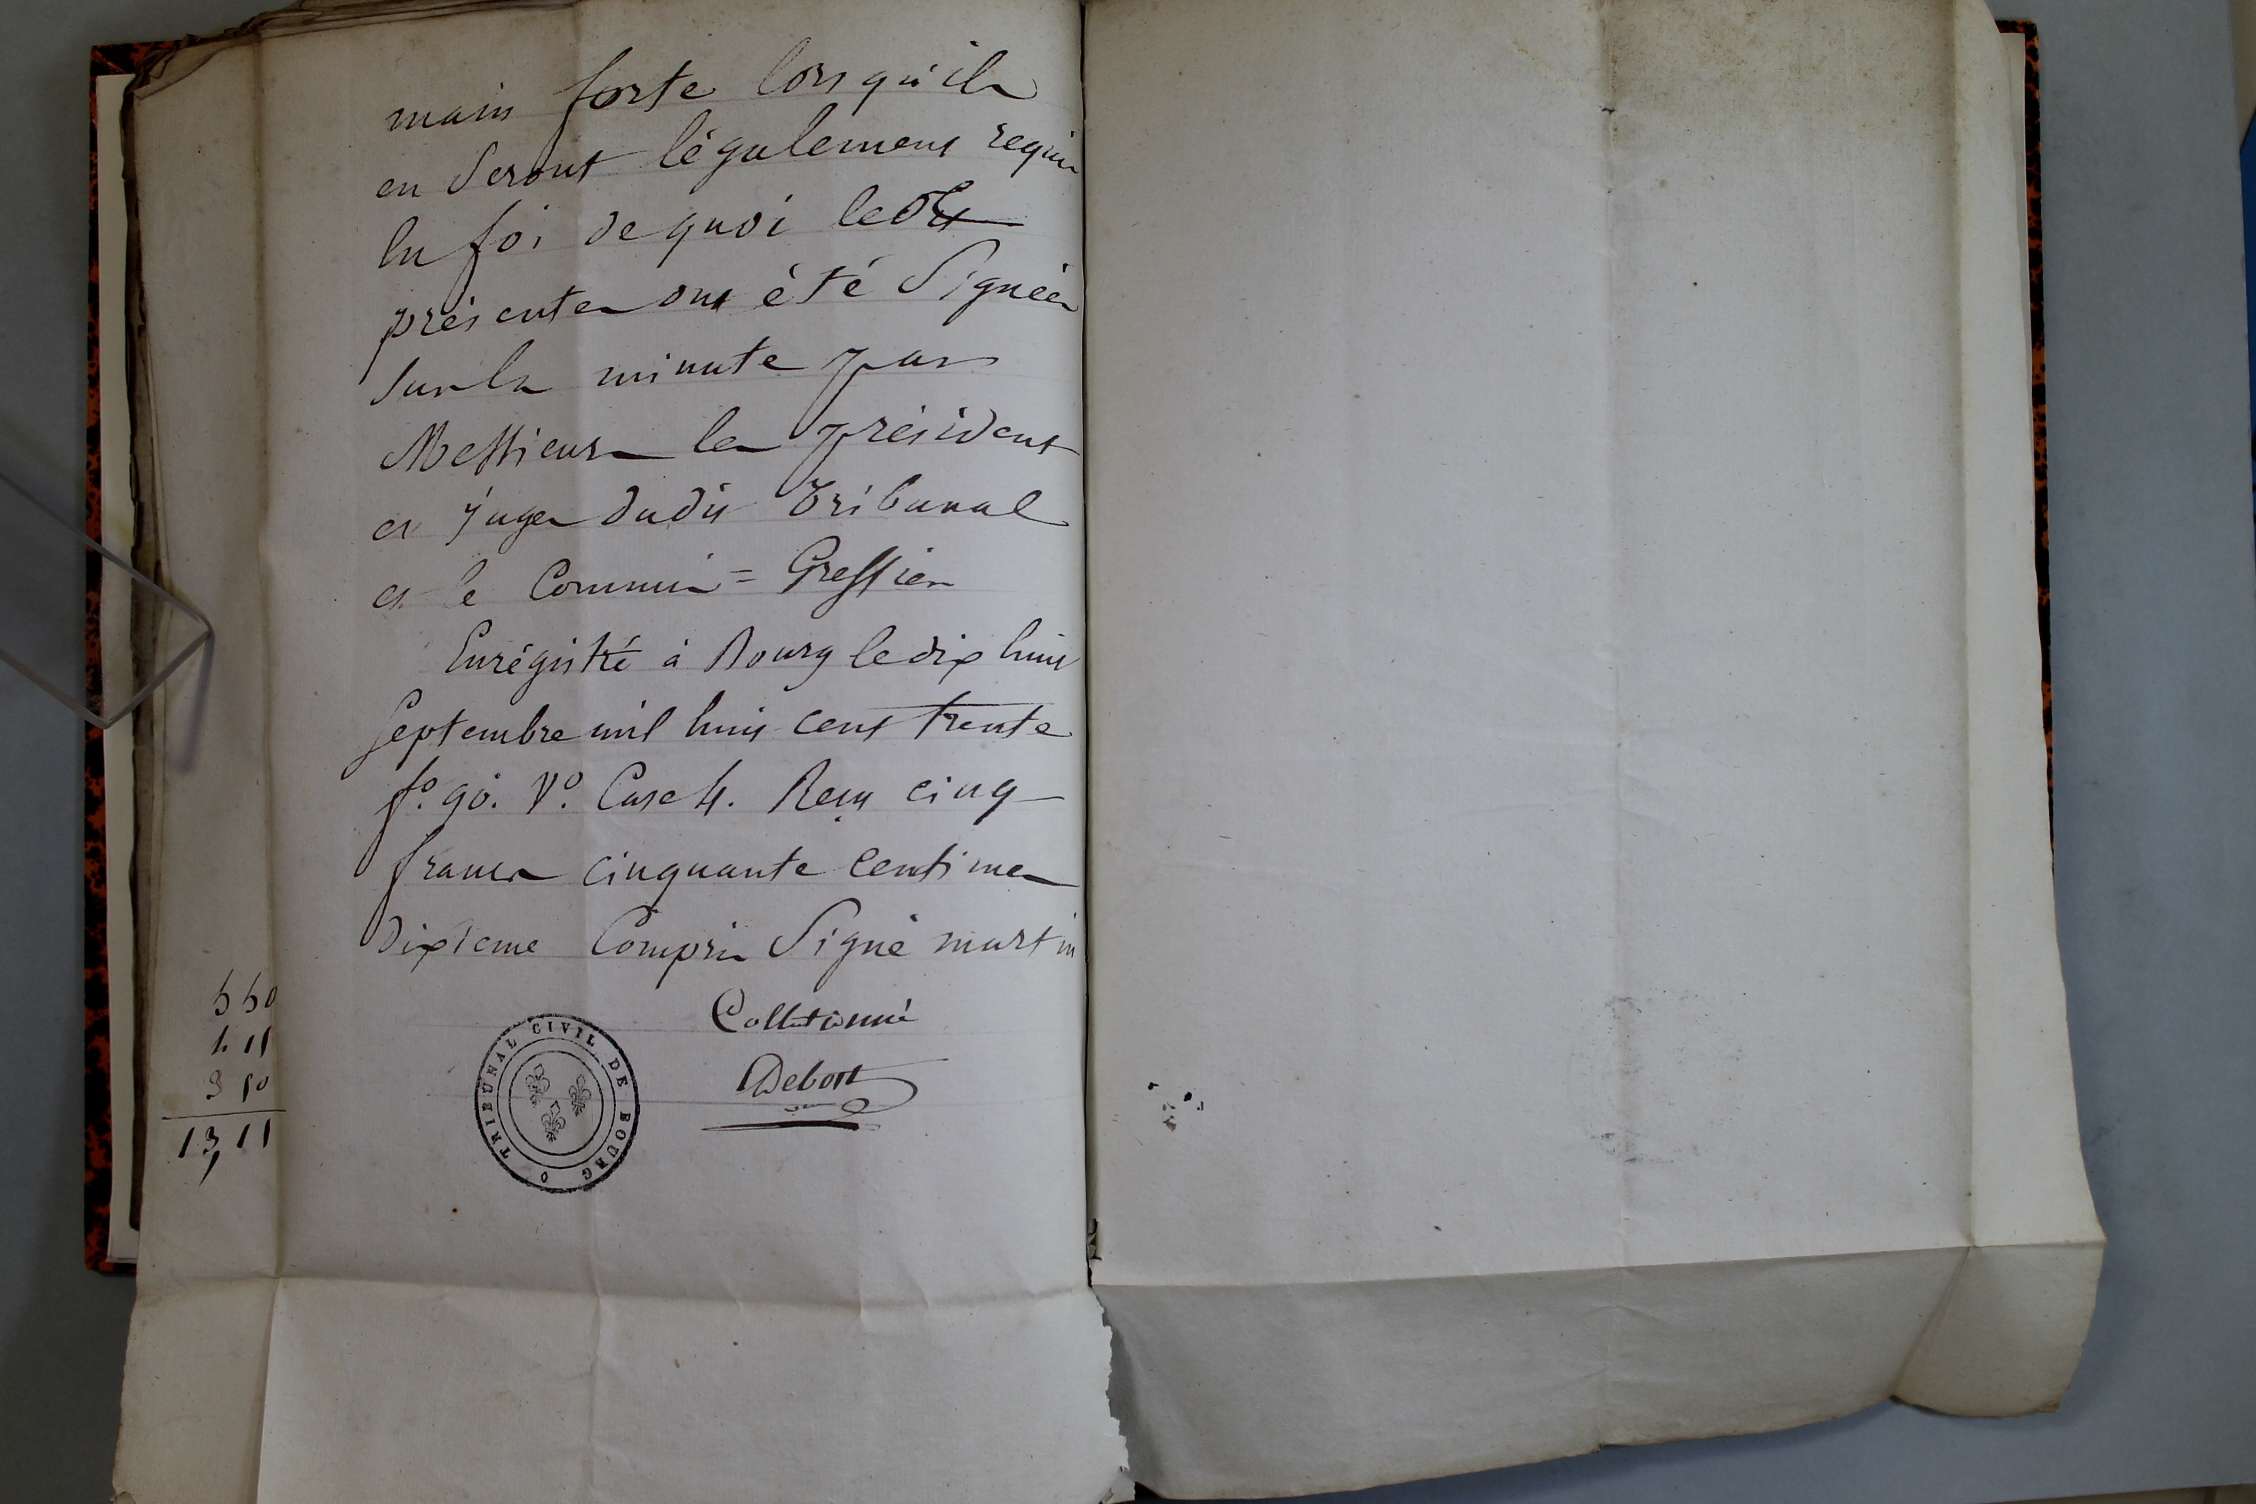 main forte lorsqu'ils
en seront légalement requis
En foi de quoi lesdtes
présentes ont été Signées
Sur la minute par
Messieurs les président
et juges dudit Tribunal
et le Commis = Greffier
Enrégistré à Bourg le dix huit
Septembre mil huit cent trente
f°. 90. V°. Case 4. Reçu cinq
francs cinquante centimes
Dixieme Compris Signé martin
Collationné
Debort
TRIBUNAL CIVIL DE BOURG
5 50
4. 11
3 50
13, 11